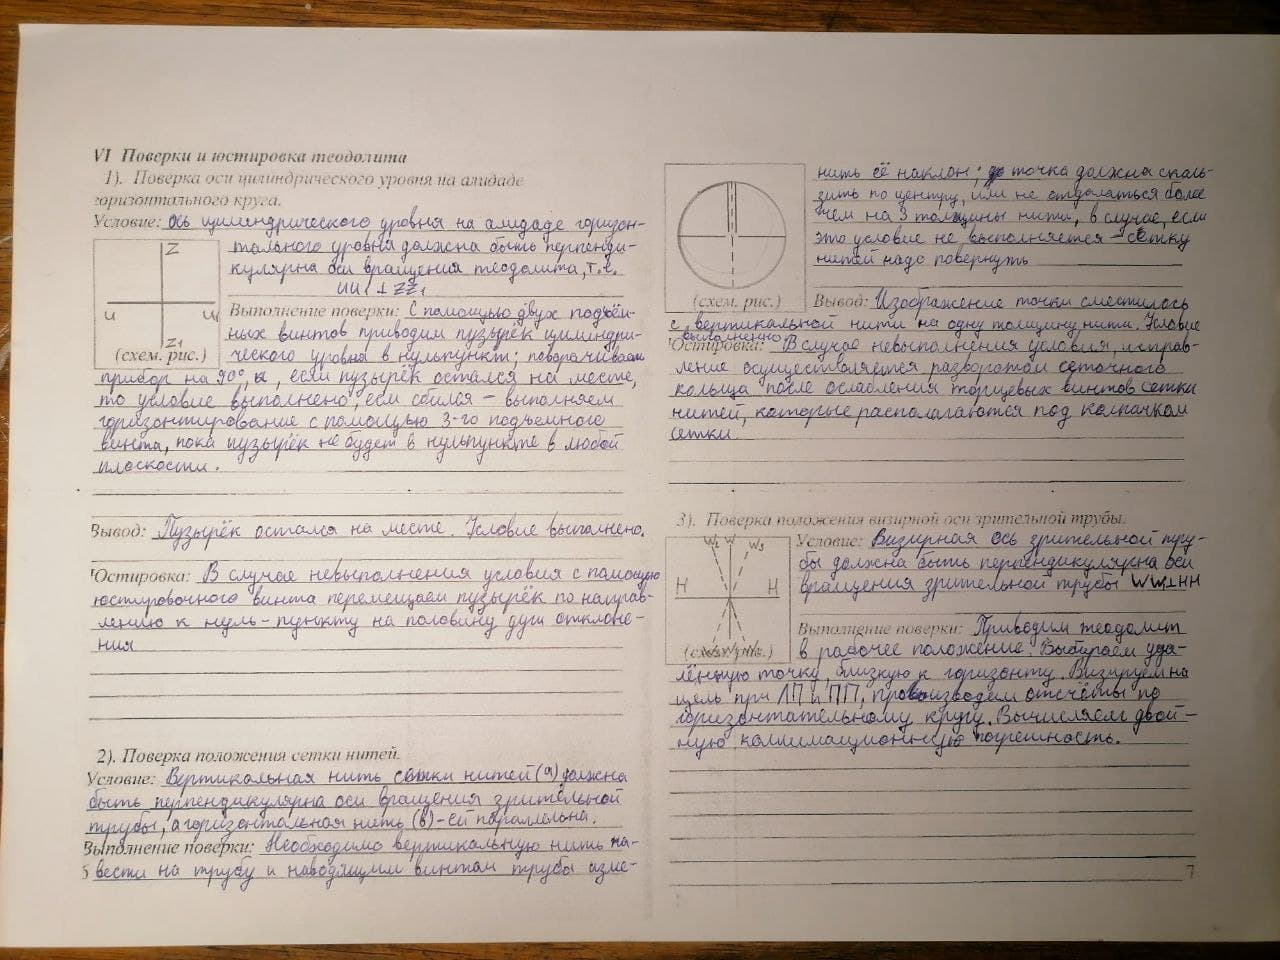 VI Поверки и юстировка теодолита
1). Поверка оси цилиндрического уровня на алидаде
горизонтального круга.
Условие: ось цилиндрического уровня на алидаде горизон-
тального уровня должна быть перпенди-
кулярна оси вращения теодолита, т.е.
ИИ1 ⊥ ZZ1
Z
И И
Z1
(схем. рис.)
Выполнение поверки: С помощью двух подъём-
ных винтов приводим пузырёк цилиндри-
ческого уровня в нульпункт; поворачиваем
прибор на 90°, и, если пузырёк остался на месте,
то условие выполнено, если сбился - выполняем
горизонтирование с помощью 3-го подъемного
винта, пока пузырёк не будет в нульпункте в любой
плоскости.
Вывод: Пузырёк остался на месте. Условие выполнено.
Юстировка: В случае невыполнения условия с помощью
юстировочного винта перемещаем пузырёк по направ-
лению к нуль-пункту на половину дуги отклоне-
ния
2). Поверка положения сетки нитей.
Условие: Вертикальная нить сетки нитей (а) должна
быть перпендикулярна оси вращения зрительной
трубы, а горизонтальная нить (в) - ей параллельна.
Выполнение поверки: Необходимо вертикальную нить на-
вести на трубу и наводящим винтом трубы изме-
нить её наклон; точка должна сколь-
зить по центру, или не отдаляться более
чем на 3 толщины нити, в случае, если
это условие не выполняется - сетку
нитей надо повернуть
(схем. рис.)
Вывод: Изображение точки сместилось
с вертикальной нити на одну толщину нити. Условие
выполненно
Юстировка: В случае невыполнения условия, исправ-
ление осуществляется разворотом сеточного
кольца после ослабления торцевых винтов сетки
нитей, которые располагаются под колпачком
сетки.
3). Поверка положения визирной оси зрительной трубы.
Условие: Визирная ось зрительной тру-
бы должна быть перпендикулярна оси
вращения зрительной трубы WW1⊥HH
W2 W W3
H H
Выполнение поверки: Приводим теодолит
в рабочее положение. Выбираем уда-
лённую точку, близкую к горизонту. Визируем на
цель при ЛП и ПП, производим отсчёты по
горизонтательному кругу. Вычисляем двой-
ную коллимационную погрешность.
7